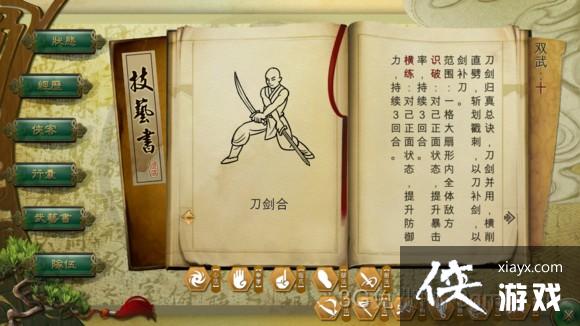 狀態
經歷
俠客
行囊
武藝書
隊伍
技藝書
刀剑合
双武：十
刀剑归真总诀，刀剑并用，横削
直劈，斩划戳刺，以刀补剑，以
剑补刀。
范围：一格大扇形内全体敌方
识破：对己正面状态，提升暴击
率，持续3回合。
横练：对己正面状态，提升防御
力，持续3回合。
xiayx.com
侠游戏